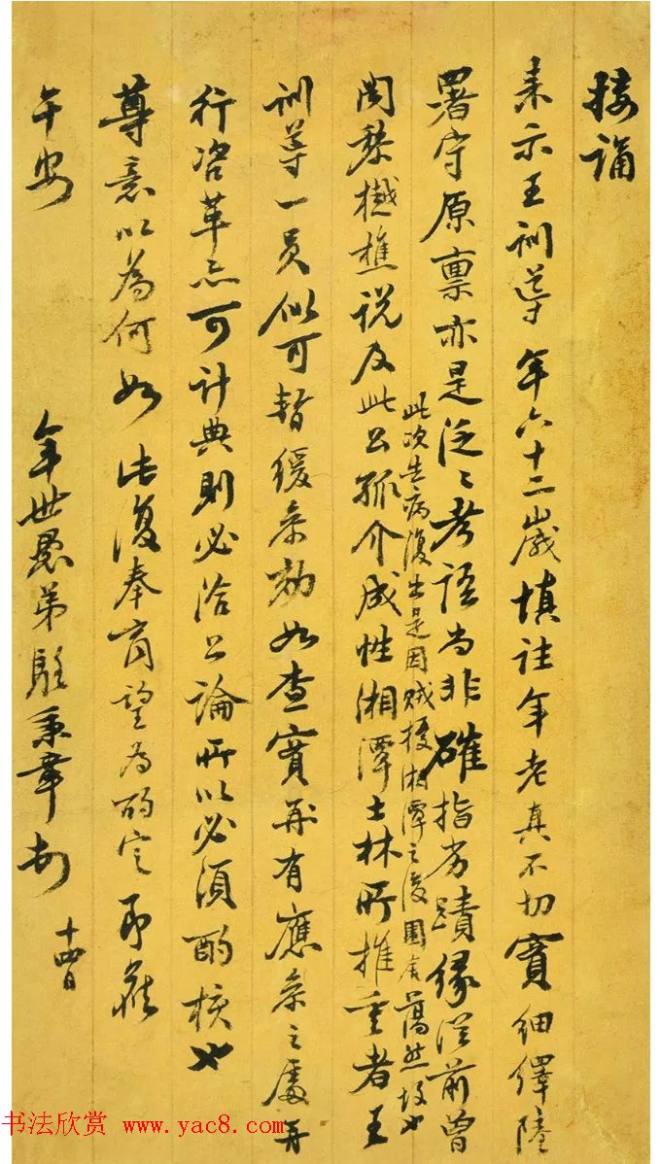 接誦
来示王訓導年六十二歲填註年老真不切實細繹陸
署守原稟亦是泛々考語尚非確指劣蹟緣從前曾
此次告病復出是因賊擾湘潭之後園舍蕩然故也
聞黎樾樵说及此公孤介成性湘潭士林所推重者王
訓導一員似可暫緩条劾如查實再有應条之處再
行咨革亦可计典則必洽公論所以必須酌核也
尊意以為何如法復奉商望為酌定即藉
午安
年世愚弟駱秉章頓
十四日
书法欣赏 www.yac8.com